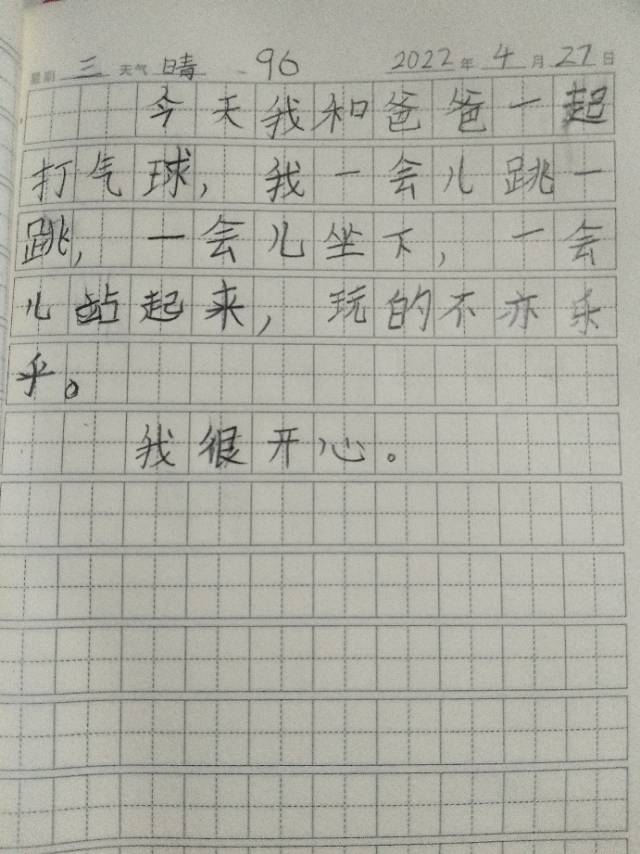 星期 三 天气 晴 96 2022 年 4 月 27 日
今天我和爸爸一起
打气球，我一会儿跳一
跳，一会儿坐下，一会
儿站起来，玩的不亦乐
乎。
我很开心。